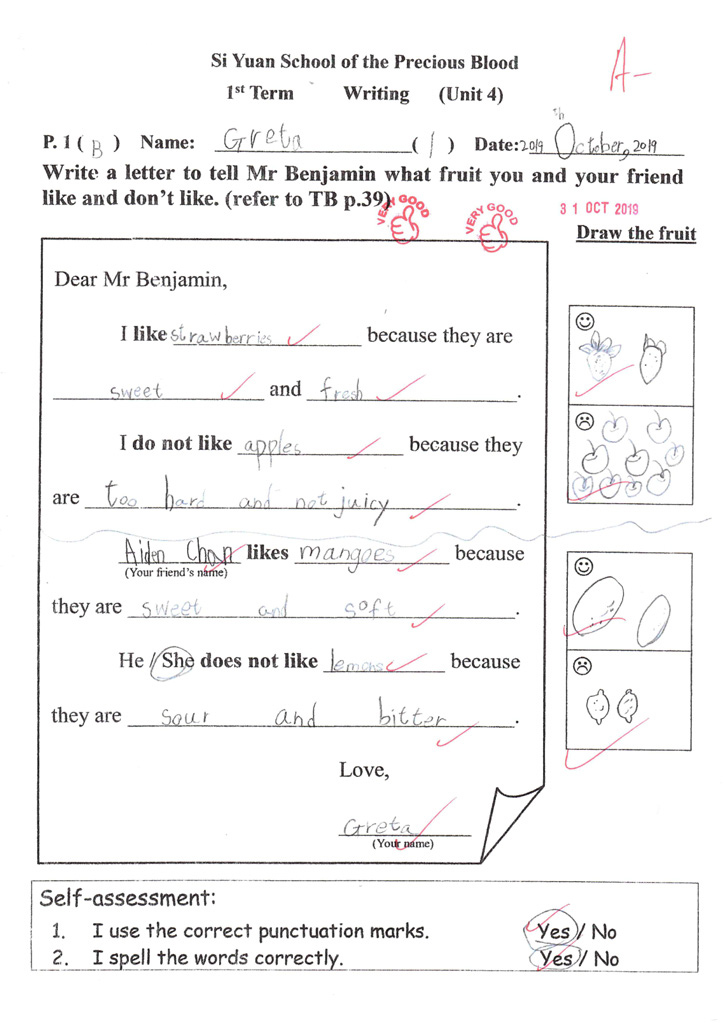 Si Yuan School of the Precious Blood
A-
1st Term Writing (Unit 4)
P. 1 ( B ) Name: Greta ( 1 ) Date: 2019 October, 2019
Write a letter to tell Mr Benjamin what fruit you and your friend
like and don't like. (refer to TB p.39)
VERY GOOD
VERY GOOD
31 OCT 2019
Draw the fruit
Dear Mr Benjamin,
I like strawberries because they are
sweet and fresh.
I do not like apples because they
are too hard and not juicy.
Aiden Chan likes mangoes because
(Your friend's name)
they are sweet and soft.
He / She does not like lemons because
they are sour and bitter.
Love,
Greta
(Your name)
Self-assessment:
1. I use the correct punctuation marks. Yes / No
2. I spell the words correctly. Yes / No